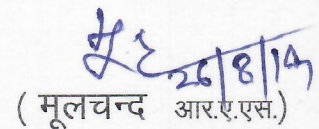 26/8/14
( मूलचन्द आर.ए.एस.)